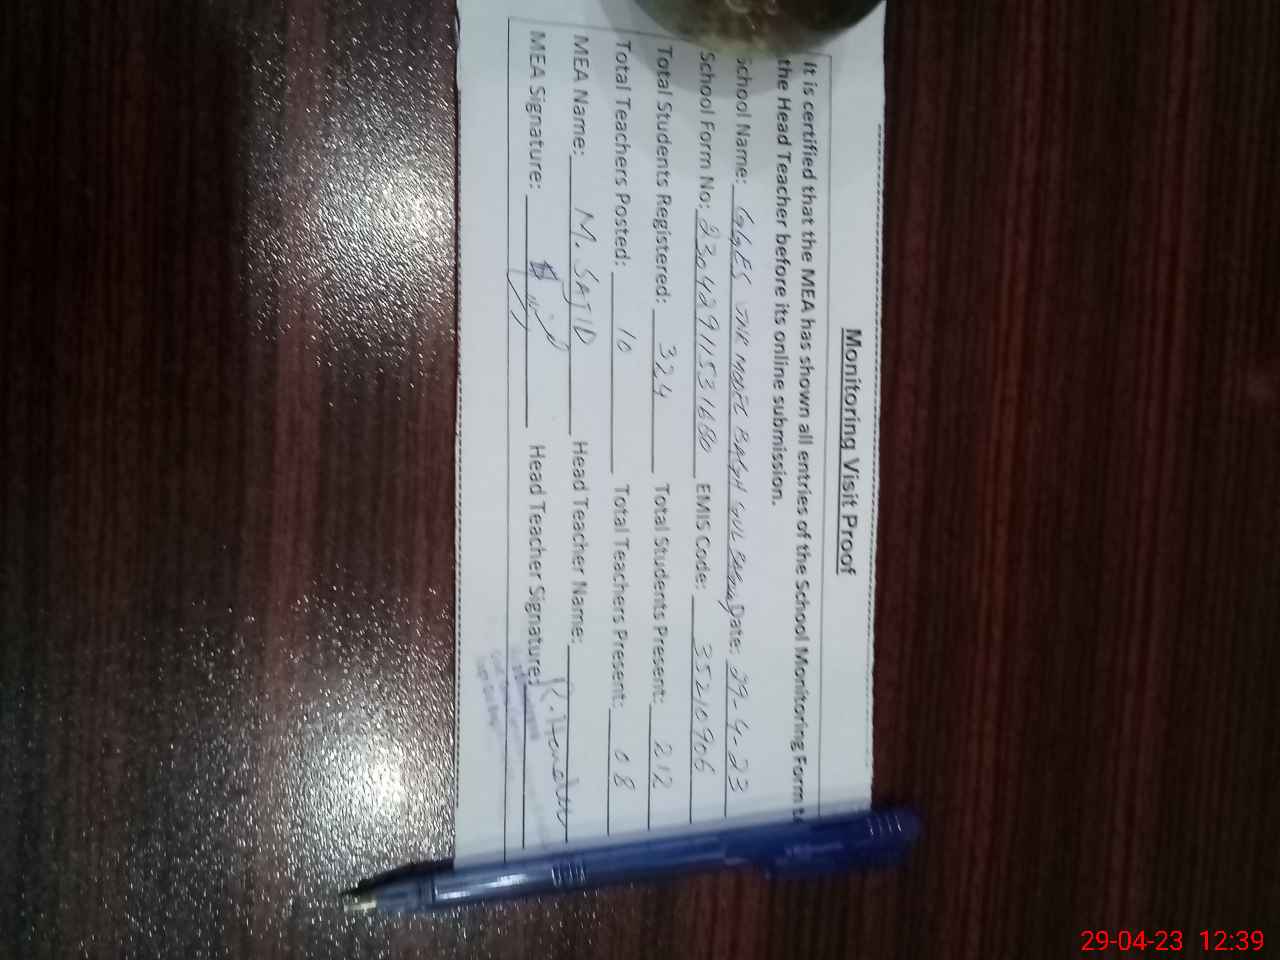 Monitoring Visit Proof
It is certified that the MEA has shown all entries of the School Monitoring Form to
the Head Teacher before its online submission.
School Name: GGES JNR MODEL GUL Date: 29-4-23
School Form No: 23042911531680 EMIS Code: 35210906
Total Students Registered: 324 Total Students Present: 212
Total Teachers Posted: 10 Total Teachers Present: 08
MEA Name: M. SAJID Head Teacher Name:
MEA Signature: Head Teacher Signature:
29-04-23 12:39